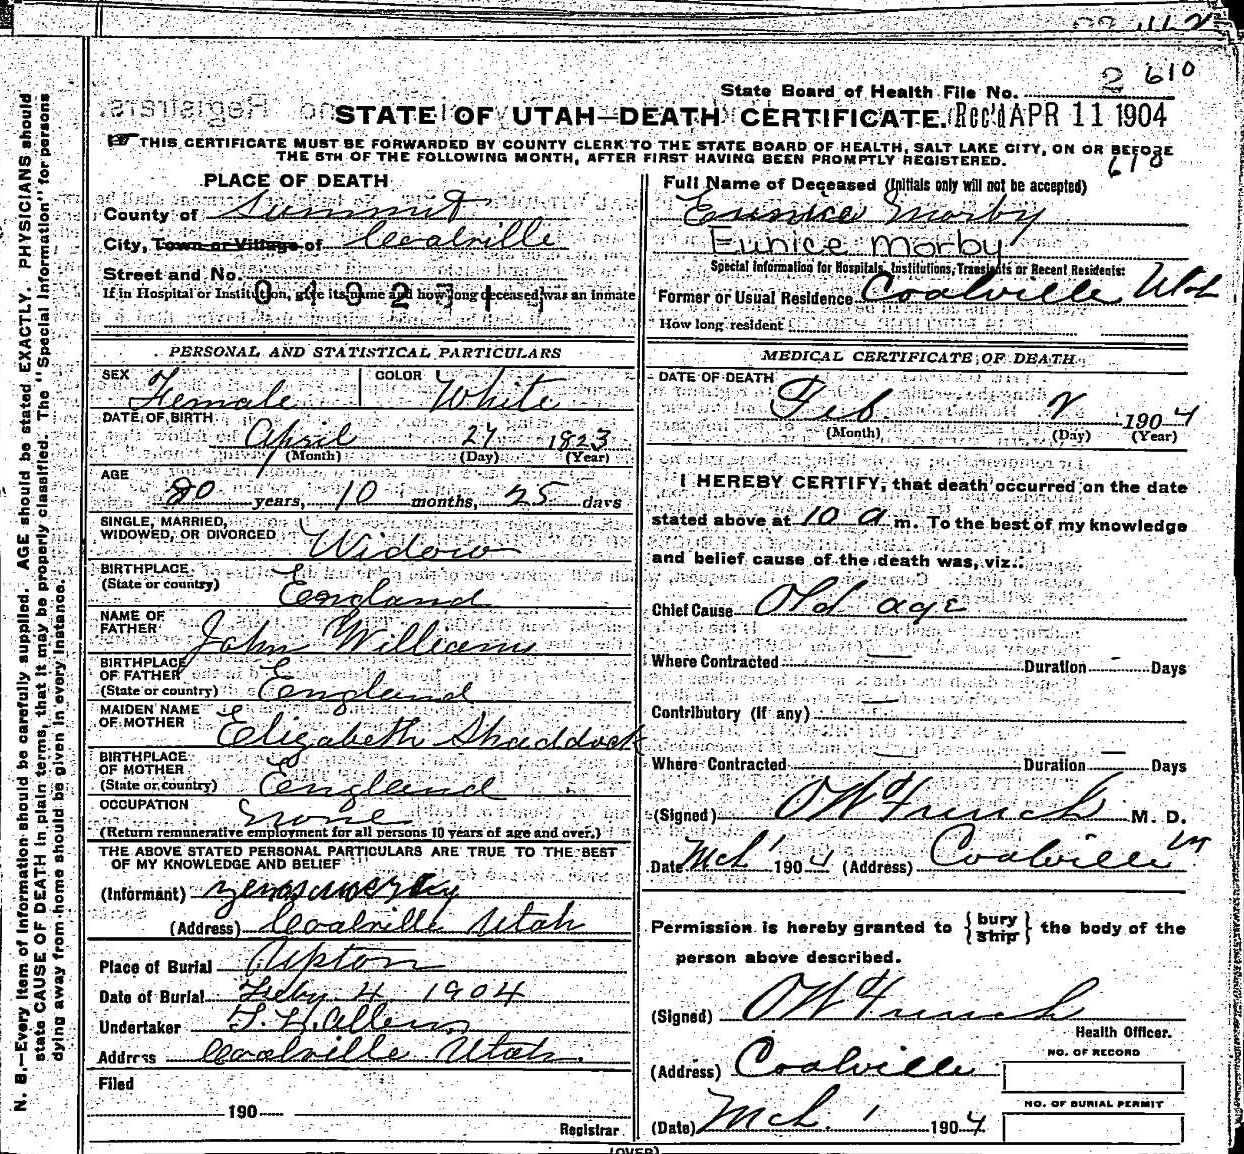 State Board of Health File No. 2 610
STATE OF UTAH—DEATH CERTIFICATE. Rec'd APR 11 1904
THIS CERTIFICATE MUST BE FORWARDED BY COUNTY CLERK TO THE STATE BOARD OF HEALTH, SALT LAKE CITY, ON OR BEFORE
THE 5TH OF THE FOLLOWING MONTH, AFTER FIRST HAVING BEEN PROMPTLY REGISTERED.
610
PLACE OF DEATH
County of Summit
City, Town or Village of Coalville
Street and No.
If in Hospital or Institution, give its name and how long deceased was an inmate
Full Name of Deceased (Initials only will not be accepted)
Eunice Morby
Eunice Morby
Special Information for Hospitals, Institutions, Transients or Recent Residents:
Former or Usual Residence Coalville Utah
How long resident
PERSONAL AND STATISTICAL PARTICULARS
SEX Female COLOR White
DATE OF BIRTH
April 27 1823
(Month) (Day) (Year)
AGE
80 years, 10 months, 25 days
SINGLE, MARRIED,
WIDOWED, OR DIVORCED Widow
BIRTHPLACE
(State or country) England
NAME OF
FATHER John Williams
BIRTHPLACE
OF FATHER
(State or country) England
MAIDEN NAME
OF MOTHER Elizabeth Shaddock
BIRTHPLACE
OF MOTHER
(State or country) England
OCCUPATION None
(Return remunerative employment for all persons 10 years of age and over.)
THE ABOVE STATED PERSONAL PARTICULARS ARE TRUE TO THE BEST
OF MY KNOWLEDGE AND BELIEF
(Informant)
(Address) Coalville Utah
Place of Burial Upton
Date of Burial Feby 4 1904
Undertaker T. H. Allen
Address Coalville Utah.
Filed
190
Registrar
MEDICAL CERTIFICATE OF DEATH
DATE OF DEATH
Feb 2 1904
(Month) (Day) (Year)
I HEREBY CERTIFY, that death occurred on the date
stated above at 10 a m. To the best of my knowledge
and belief cause of the death was, viz.:
Chief Cause Old age
Where Contracted — Duration - Days
Contributory (If any) —
Where Contracted — Duration — Days
(Signed) O W French M. D.
Date Mch 1 1904 (Address) Coalville
Permission is hereby granted to { bury ship } the body of the
person above described.
(Signed) O W French
Health Officer.
(Address) Coalville
NO. OF RECORD
NO. OF BURIAL PERMIT
(Date) Mch. 1 1904
(OVER)
N. B.—Every item of information should be carefully supplied. AGE should be stated EXACTLY. PHYSICIANS should
state CAUSE OF DEATH in plain terms, that it may be properly classified. The "Special Information" for persons
dying away from home should be given in every instance.